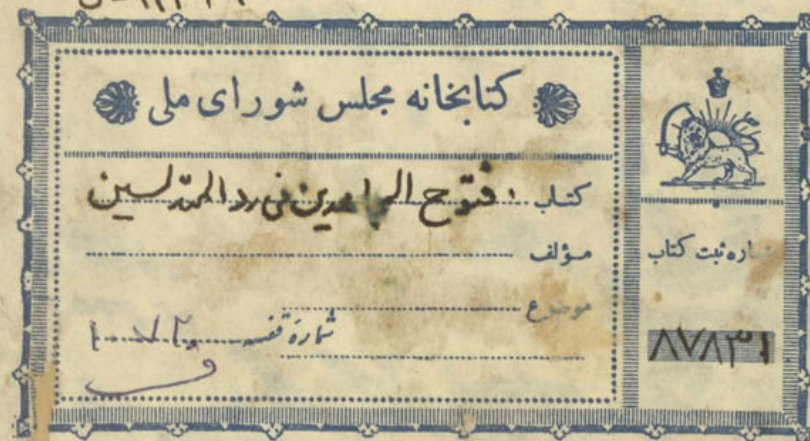 کتابخانه مجلس شورای ملی
کتاب فتوح المجاهدین فی رد المتدلسین
مؤلف
موضوع
شماره قفسه
شماره ثبت کتاب
۸۷۸۳۱